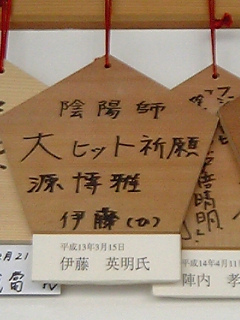 陰陽師
大ヒット祈願
源博雅
伊藤
平成13年3月15日
伊藤 英明氏
平成14年4月11
陣内 孝
晴明
月21